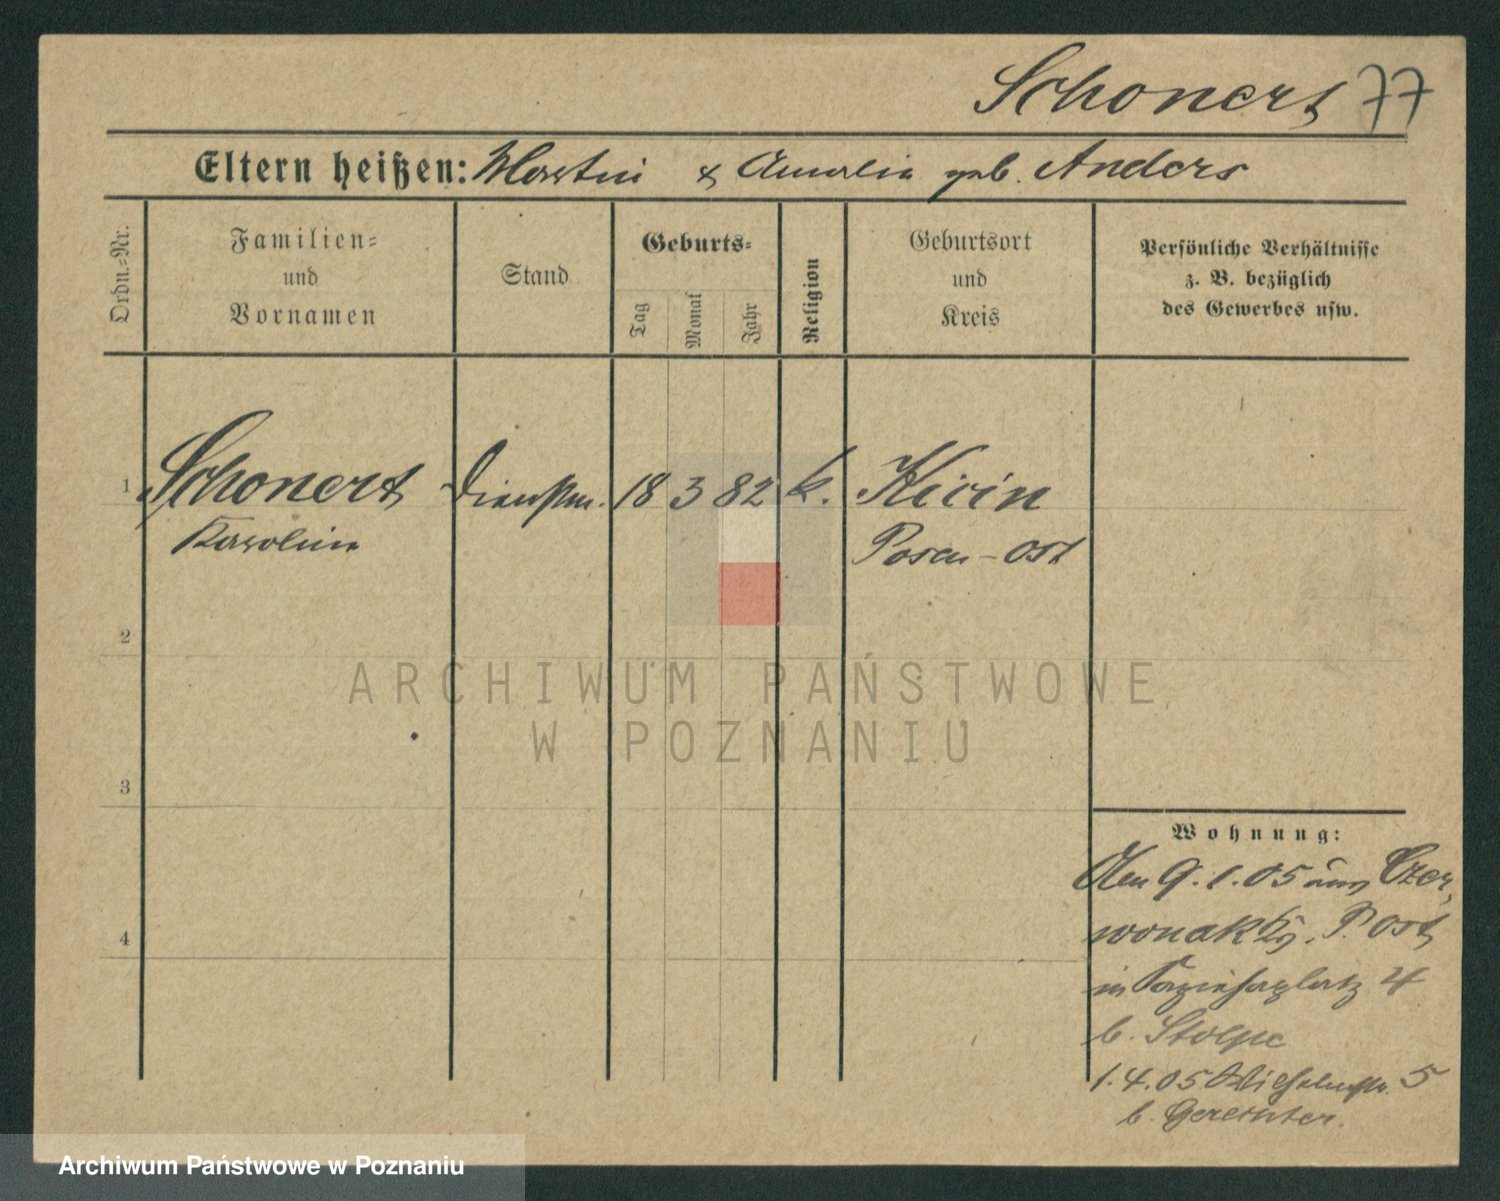 Schonert 77
Eltern heißen: Martin & Amalia geb. Anders
Ordn.-Nr.
Familien-
und
Vornamen
Stand
Geburts-
Tag
Monat
Jahr
Religion
Geburtsort
und
Kreis
Persönliche Verhältnisse
z. B. bezüglich
des Gewerbes usw.
1 Schonert Dienstm. 18 3 82 k. Kicin
Karolina Posen-Ost
2
3
4
ARCHIWUM PAŃSTWOWE
W POZNANIU
Wohnung:
Den 9.1.05 aus Czer-
wonak P. Ost
in 4
b. Stolpe
1.4.05 5
b.
Archiwum Państwowe w Poznaniu